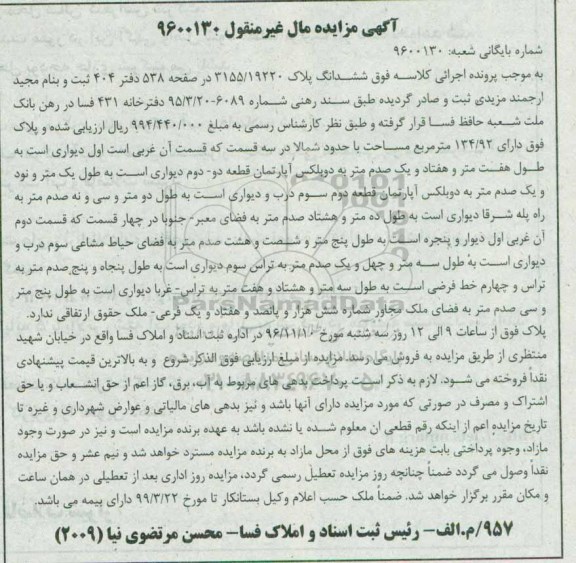 آگهی مزایده مال غیرمنقول ۹۶۰۰۱۳۰
شماره بایگانی شعبه: ۹۶۰۰۱۳۰
به موجب پرونده اجرائی کلاسه فوق ششدانگ پلاک ۳۱۵۵/۱۹۲۲۰ در صفحه ۵۳۸ دفتر ۴۰۴ ثبت و بنام مجید
ارجمند مزیدی ثبت و صادر گردیده طبق سند رهنی شماره ۶۰۸۹-۹۵/۳/۲۰ دفترخانه ۴۳۱ فسا در رهن بانک
ملت شعبه حافظ فسا قرار گرفته و طبق نظر کارشناس رسمی به مبلغ ۹۹۴/۴۴۰/۰۰۰ ریال ارزیابی شده و پلاک
فوق دارای ۱۳۴/۹۲ مترمربع مساحت با حدود شمالا در سه قسمت که قسمت آن غربی است اول دیواری است به
طول هفت متر و هفتاد و یک صدم متر به دوپلکس آپارتمان قطعه دو- دوم دیواری است به طول یک متر و نود
و یک صدم متر به دوپلکس آپارتمان قطعه دوم سوم درب و دیواری است به طول دو متر و سی و نه صدم متر به
راه پله شرقا دیواری است به طول ده متر و هشتاد صدم متر به فضای معبر- جنوبا در چهار قسمت که قسمت دوم
آن غربی اول دیوار و پنجره است به طول پنج متر و شصت و هشت صدم متر به فضای حیاط مشاعی سوم درب و
دیواری است به طول سه متر و چهل و یک صدم متر به تراس سوم دیواری است به طول پنجاه و پنج صدم متر به
تراس و چهارم خط فرضی است به طول سه متر و هشتاد و هفت متر به تراس- غربا دیواری است به طول پنج متر
و سی صدم متر به فضای ملک مجاور شماره شش هزار و پانصد و هفتاد و یک فرعی- ملک حقوق ارتفاقی ندارد.
پلاک فوق از ساعات ۹ الی ۱۲ روز سه شنبه مورخ ۹۶/۱۱/۱۰ در اداره ثبت اسناد و املاک فسا واقع در خیابان شهید
منتظری از طریق مزایده به فروش می رسد مزایده از مبلغ ارزیابی فوق الذکر شروع و به بالاترین قیمت پیشنهادی
نقداً فروخته می شود. لازم به ذکر است پرداخت بدهی های مربوط به آب، برق، گاز اعم از حق انشعاب و یا حق
اشتراک و مصرف در صورتی که مورد مزایده دارای آنها باشد و نیز بدهی های مالیاتی و عوارض شهرداری و غیره تا
تاریخ مزایده اعم از اینکه رقم قطعی ان معلوم شده یا نشده باشد به عهده برنده مزایده است و نیز در صورت وجود
مازاد، وجوه پرداختی بابت هزینه های فوق از محل مازاد به برنده مزایده مسترد خواهد شد و نیم عشر و حق مزایده
نقداً وصول می گردد ضمناً چنانچه روز مزایده تعطیل رسمی گردد، مزایده روز اداری بعد از تعطیلی در همان ساعت
و مکان مقرر برگزار خواهد شد. ضمناً ملک حسب اعلام وکیل بستانکار تا مورخ ۹۹/۳/۲۲ دارای بیمه می باشد.
۹۵۷/م.الف- رئیس ثبت اسناد و املاک فسا- محسن مرتضوی نیا (۲۰۰۹)
ParsNamadData